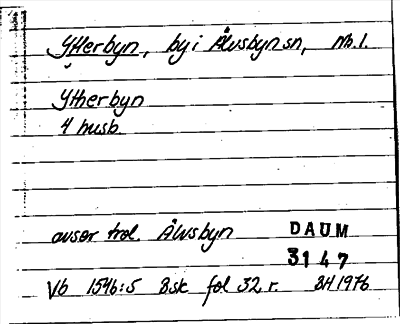 Ytterbyn, by i Älvsbyn sn, Nb.l.
Ytherbyn
4 husb.
avser trol. Älvsbyn
DAUM
3147
Vb 1546:5 Bsk fol 32 r. BH 1976